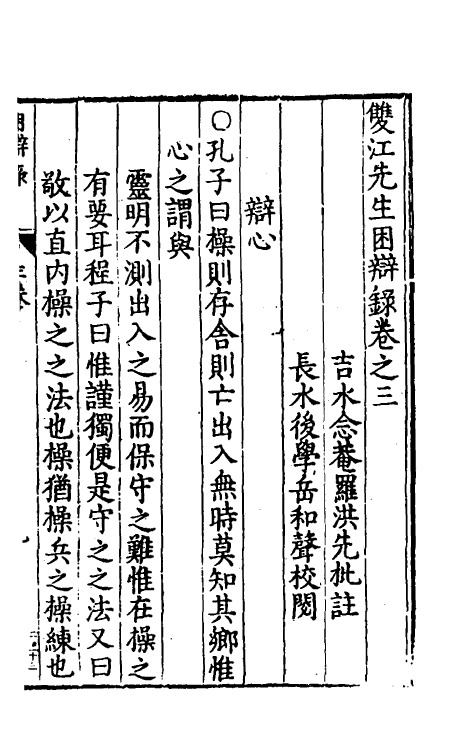 雙江先生困辯錄卷之三
吉水念菴羅洪先批註
長水後學岳和聲校閱
辯心
○孔子曰操則存舍則亡出入無時莫知其鄉惟
心之謂與
靈明不測出入之易而保守之難惟在操之
有要耳程子曰惟謹獨便是守之之法又曰
敬以直內操之之法也操猶操兵之操練也
辯錄